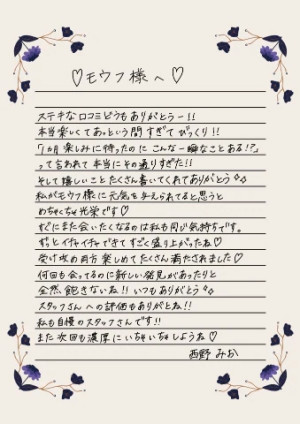 ♡モウフ様へ♡
ステキな口コミどうもありがとうー!!
本当楽しくてあっという間すぎてびっくり!!
「1ヵ月楽しみに待ったのにこんな一瞬なことある!?」
って言われて本当にその通りすぎた!!
そして嬉しいことたくさん書いてくれてありがとう✧✧
私がモウフ様に元気を与えられてると思うと
めちゃくちゃ光栄です♡
すぐにまた会いたくなるのは私も同じ気持ちです。
ずっとイチャイチャできてすごく盛り上がったね♡
受け攻め両方楽しめてたくさん満たされました♡
何回も会ってるのに新しい発見があったりと
全然飽きないね!!いつもありがとう✧✧
スタッフさんへの評価もありがとね!!
私も自慢のスタッフさんです!!
また次回も濃厚にいちゃいちゃしようね♡
西野 みか